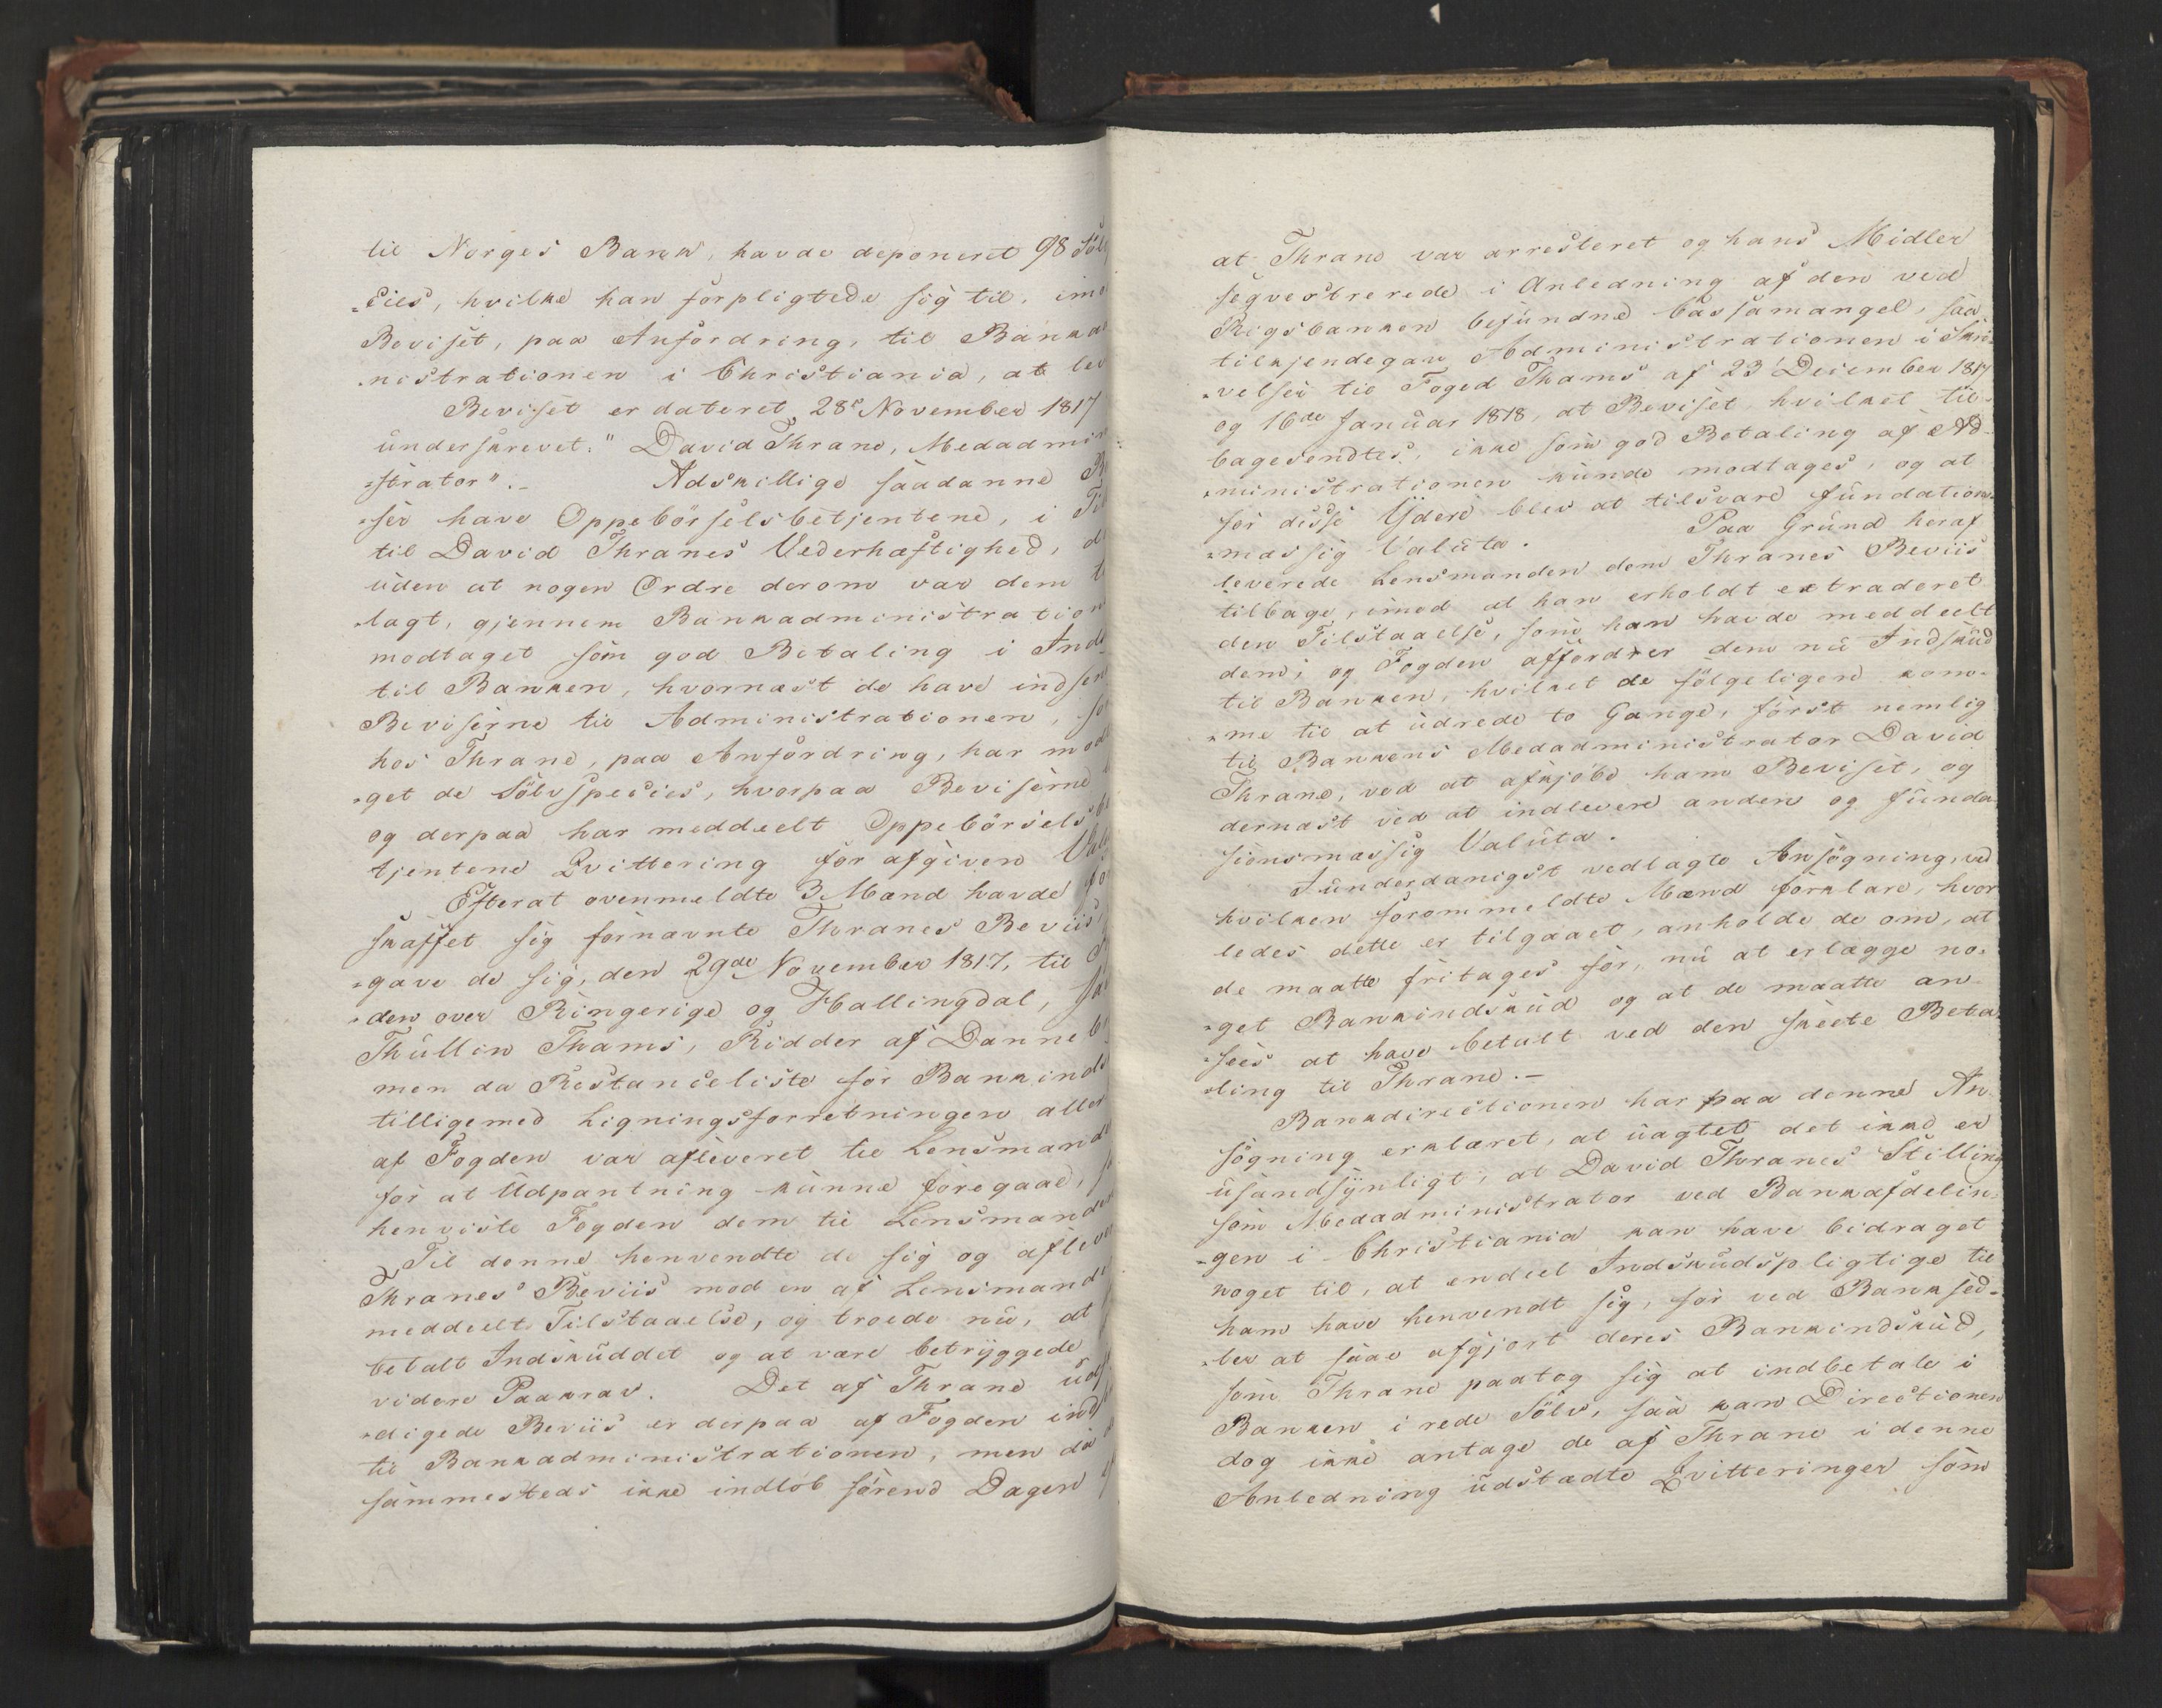 til Norges Bank, havde deponeret 98 Söl
=cies, hvilke han forpligtede sig til, imo
Beviset, paa Anfordring, til Bankad
=nistrationen i Christiania, at lev
Beviset er dateret 28de November 1817
underskrevet: "David Thrane, Medadmin
=strator". _ Adskillige saadanne Be
=ser have Oppebörselsbetjentene, i Til
til David Thranes Vederhæftighed,
uden at nogen Ordre derom var dem
=lagt, gjennem Bankadministration
modtaget som god Betaling i Inds
til Banken, hvornæst de have indsen
Beviserne til Administrationen, so
hos Thrane, paa Anfordring, har mod
=get de Sölvspecies, hvorpaa Beviserne
og derpaa har meddeelt Oppebörselsbe
tjentene Qvittering for afgiven Val
Efterat ovenmeldte 3 Mænd havde
skaffet sig fornævnte Thranes Beviis,
=gave de sig, den 29de November 1817, til
=den over Ringerige og Hallingdal,
Thullin Thams, Ridder af Danneb
men da Restanceliste for Bankinds
tilligemed Ligningsforretningen aller
af Fogden var afleveret til Lensmand
for at Udpantning kunne foregaae,
henviste Fogden dem til Lensmanden
Til denne henvendte de sig og aflever
Thranes Beviis mod en af Lensmande
meddeelt Tilstaaelse, og troede nu, at
betalt Indskuddet og at være betryggede
videre Paakrav. Det af Thrane udf
=digede Beviis er derpaa af Fogden inds
til Bankadministrationen, men da
sammesteds ikke indlöb förend Dagen
at Thrane var arresteret og hans Midler
seqvestrerede i Anledning af den ved
Rigsbanken befundne Cassamangel, saa
tilkjendegav Administrationen i Skri=
=velser til Foged Thams af 23 December 1817
og 16de Januar 1818, at Beviset, hvilket til=
bagesendtes, ikke som god Betaling af Ad=
=ministrationen kunde modtages, og at
for disse Ydere blev at tilsvare fundations=
=mæssig Valuta. Paa Grund heraf
leverede Lensmanden dem Thranes Beviis
tilbage, imod at han erholdt extraderet
den Tilstaaelse, som han havde meddeelt
dem; og Fogden affordrer dem nu Indskud
til Banken, hvilket de fölgeligen kom=
=me til at udrede to Gange, först nemlig
til Bankens Medadministrator David
Thrane, ved at afkjöbe ham Beviset, og
dernæst ved at indlevere anden og funda=
sionsmæssig Valuta.
I underdanigst vedlagte Ansögning, ved
hvilken forommeldte Mænd forklare, hvor
ledes dette er tilgaaet, anholde de om, at
de maatte fritages for, nu at erlægge no=
=get Bankindskud og at de maatte an=
=sees at have betalt ved den skeete Beta=
=ling til Thrane. _
Bankdirectionen har paa denne An=
sögning erklæret, at uagtet det ikke er
usandsynligt, at David Thranes Stilling
som Medadministrator ved Bankafdelin=
=gen i Christiania kan have bidraget
noget til, at endeel Indskudspligtige til
ham have henvendt sig, for ved Banksed=
=ler at faae afgjort deres Bankindskud,
som Thrane paatog sig at indbetale i
Banken i rede Sölv, saa kan Directionen
dog ikke antage de af Thrane i denne
Anledning udstædte Qvitteringer som